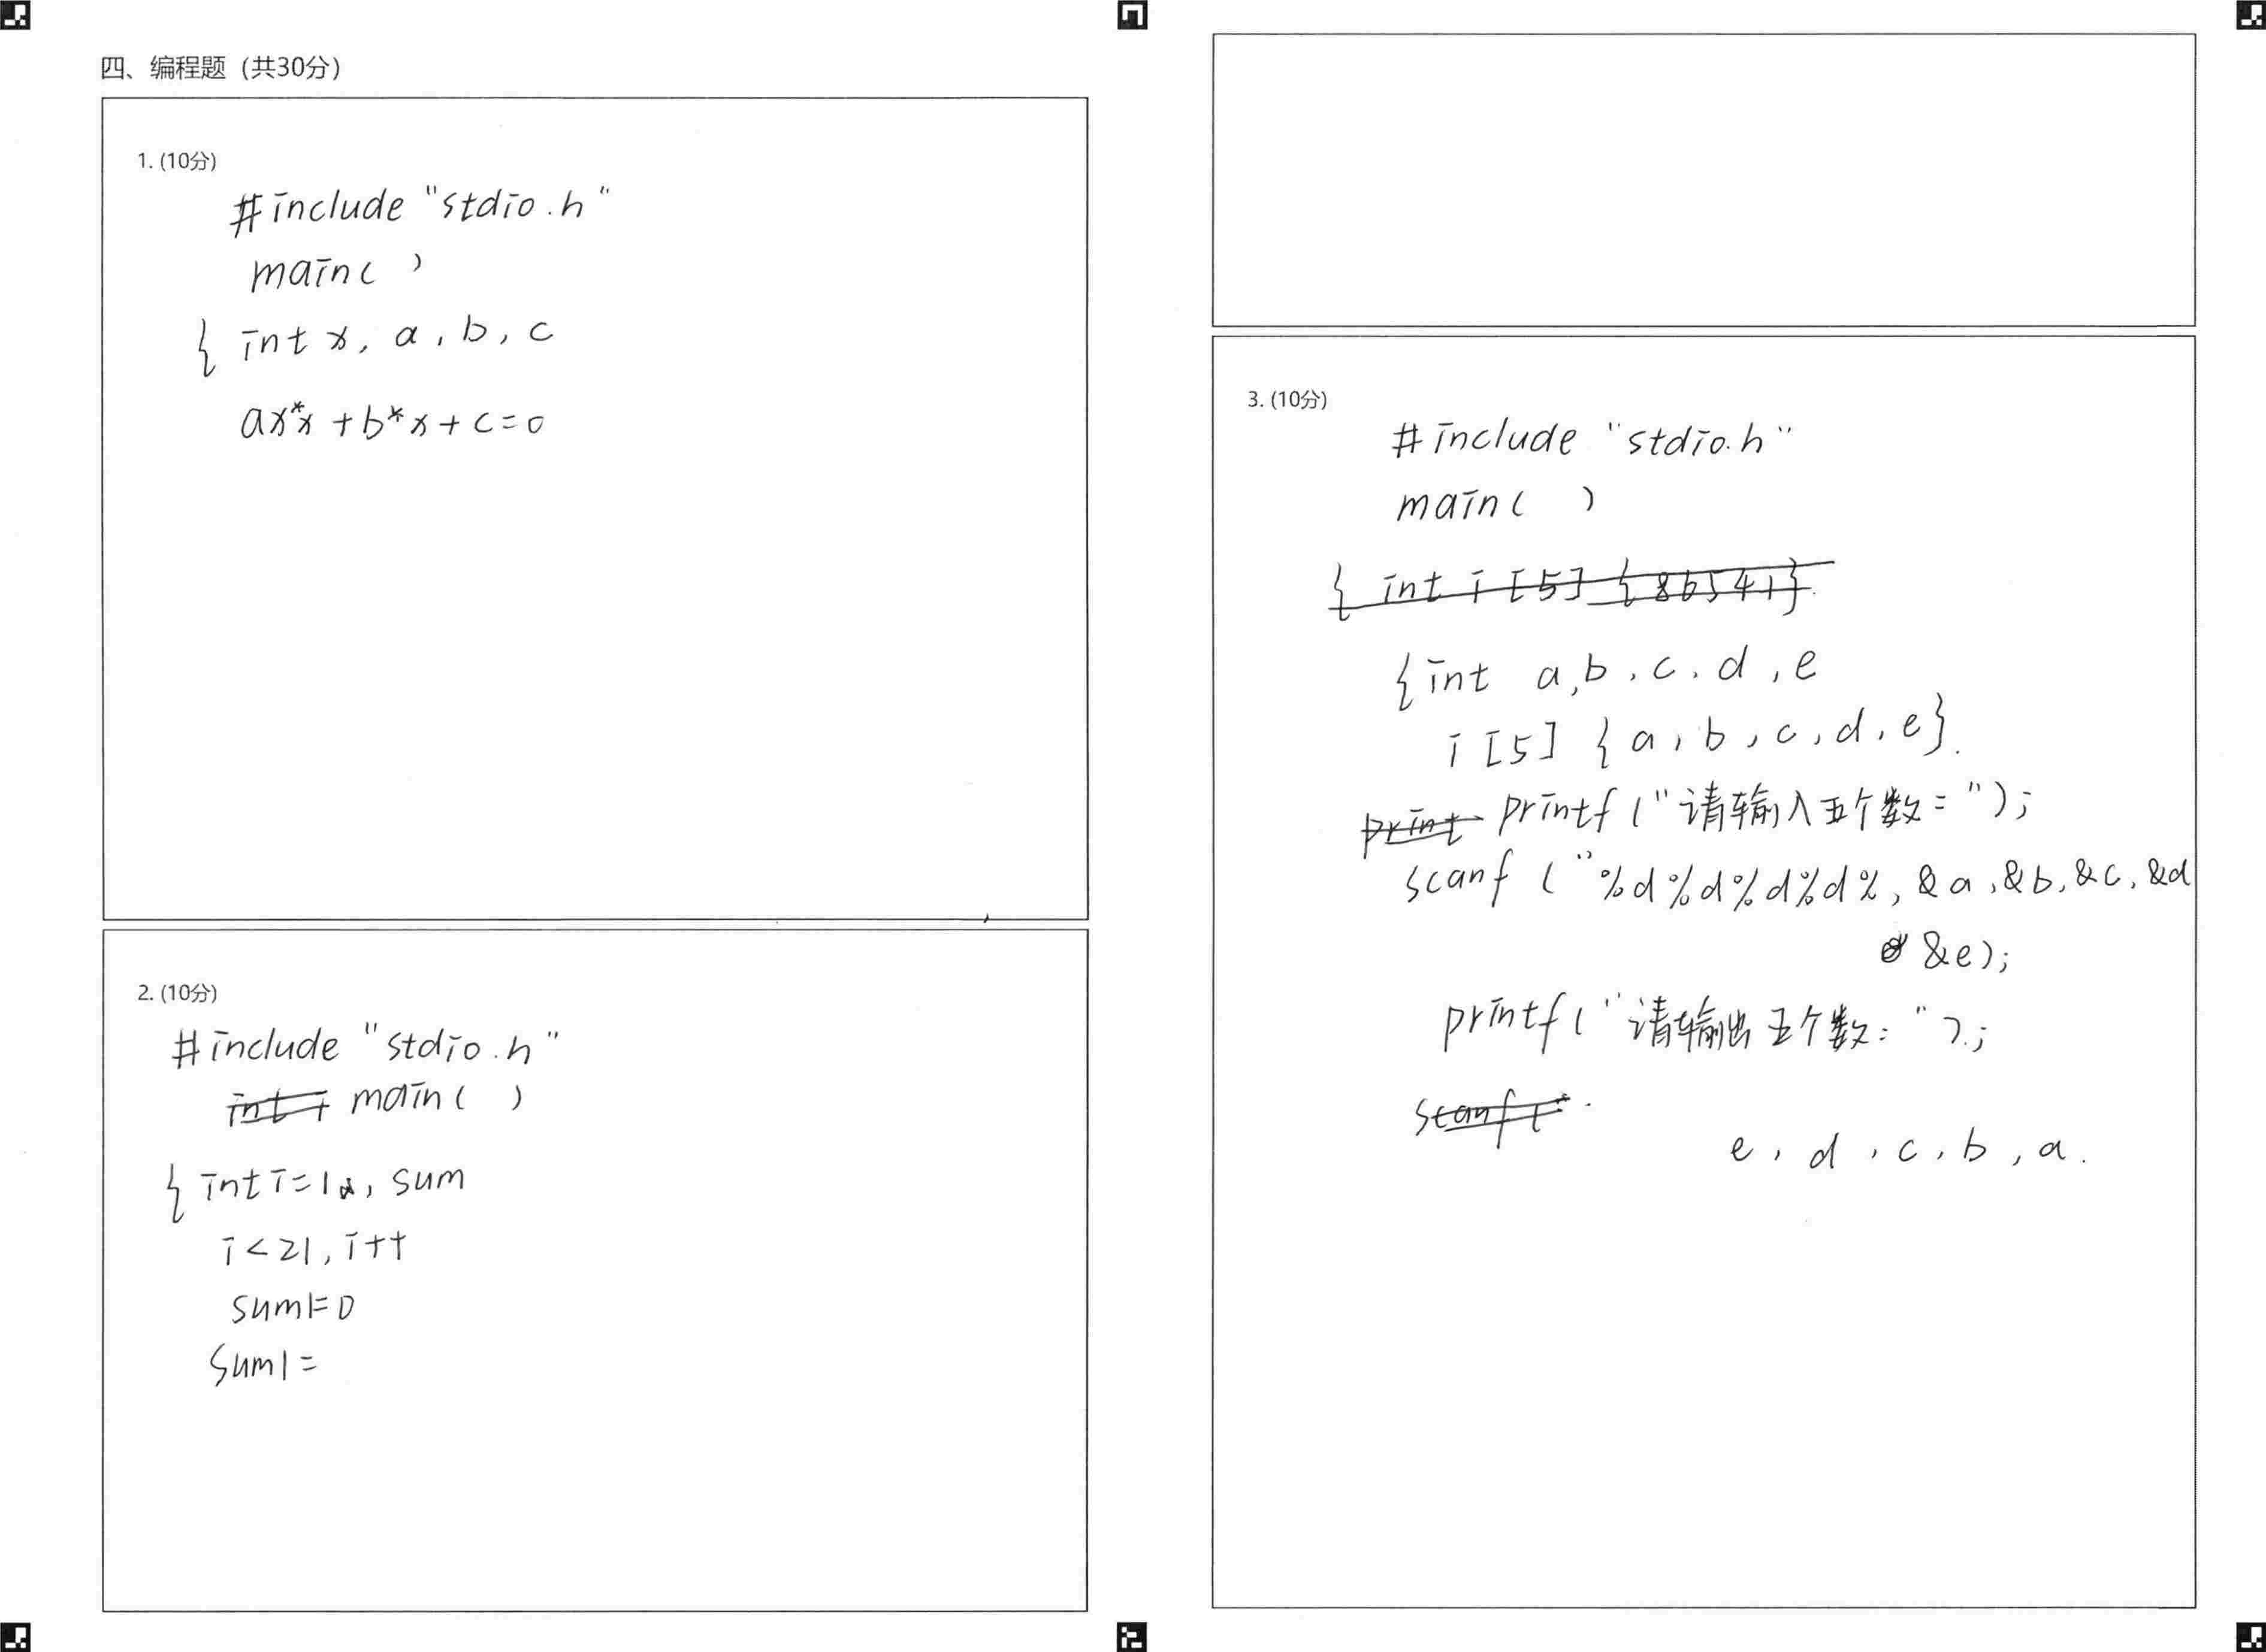 四、编程题（共30分）
1. (10分)
#include "stdio.h"
main( )
{ int x, a, b, c
ax*x + b*x + c = 0
2. (10分)
#include "stdio.h"
int i main( )
{ int i=1, sum
i<21, i++
sum1=0
sum1=
3. (10分)
#include "stdio.h"
main( )
{ int i [5] {86541}
{int a,b,c,d,e
i [5] {a,b,c,d,e}.
print printf ("请输入五个数=");
scanf ("%d%d%d%d%, &a,&b,&c,&d
&e);
printf("请输出五个数:");
scanf("
e,d,c,b,a.